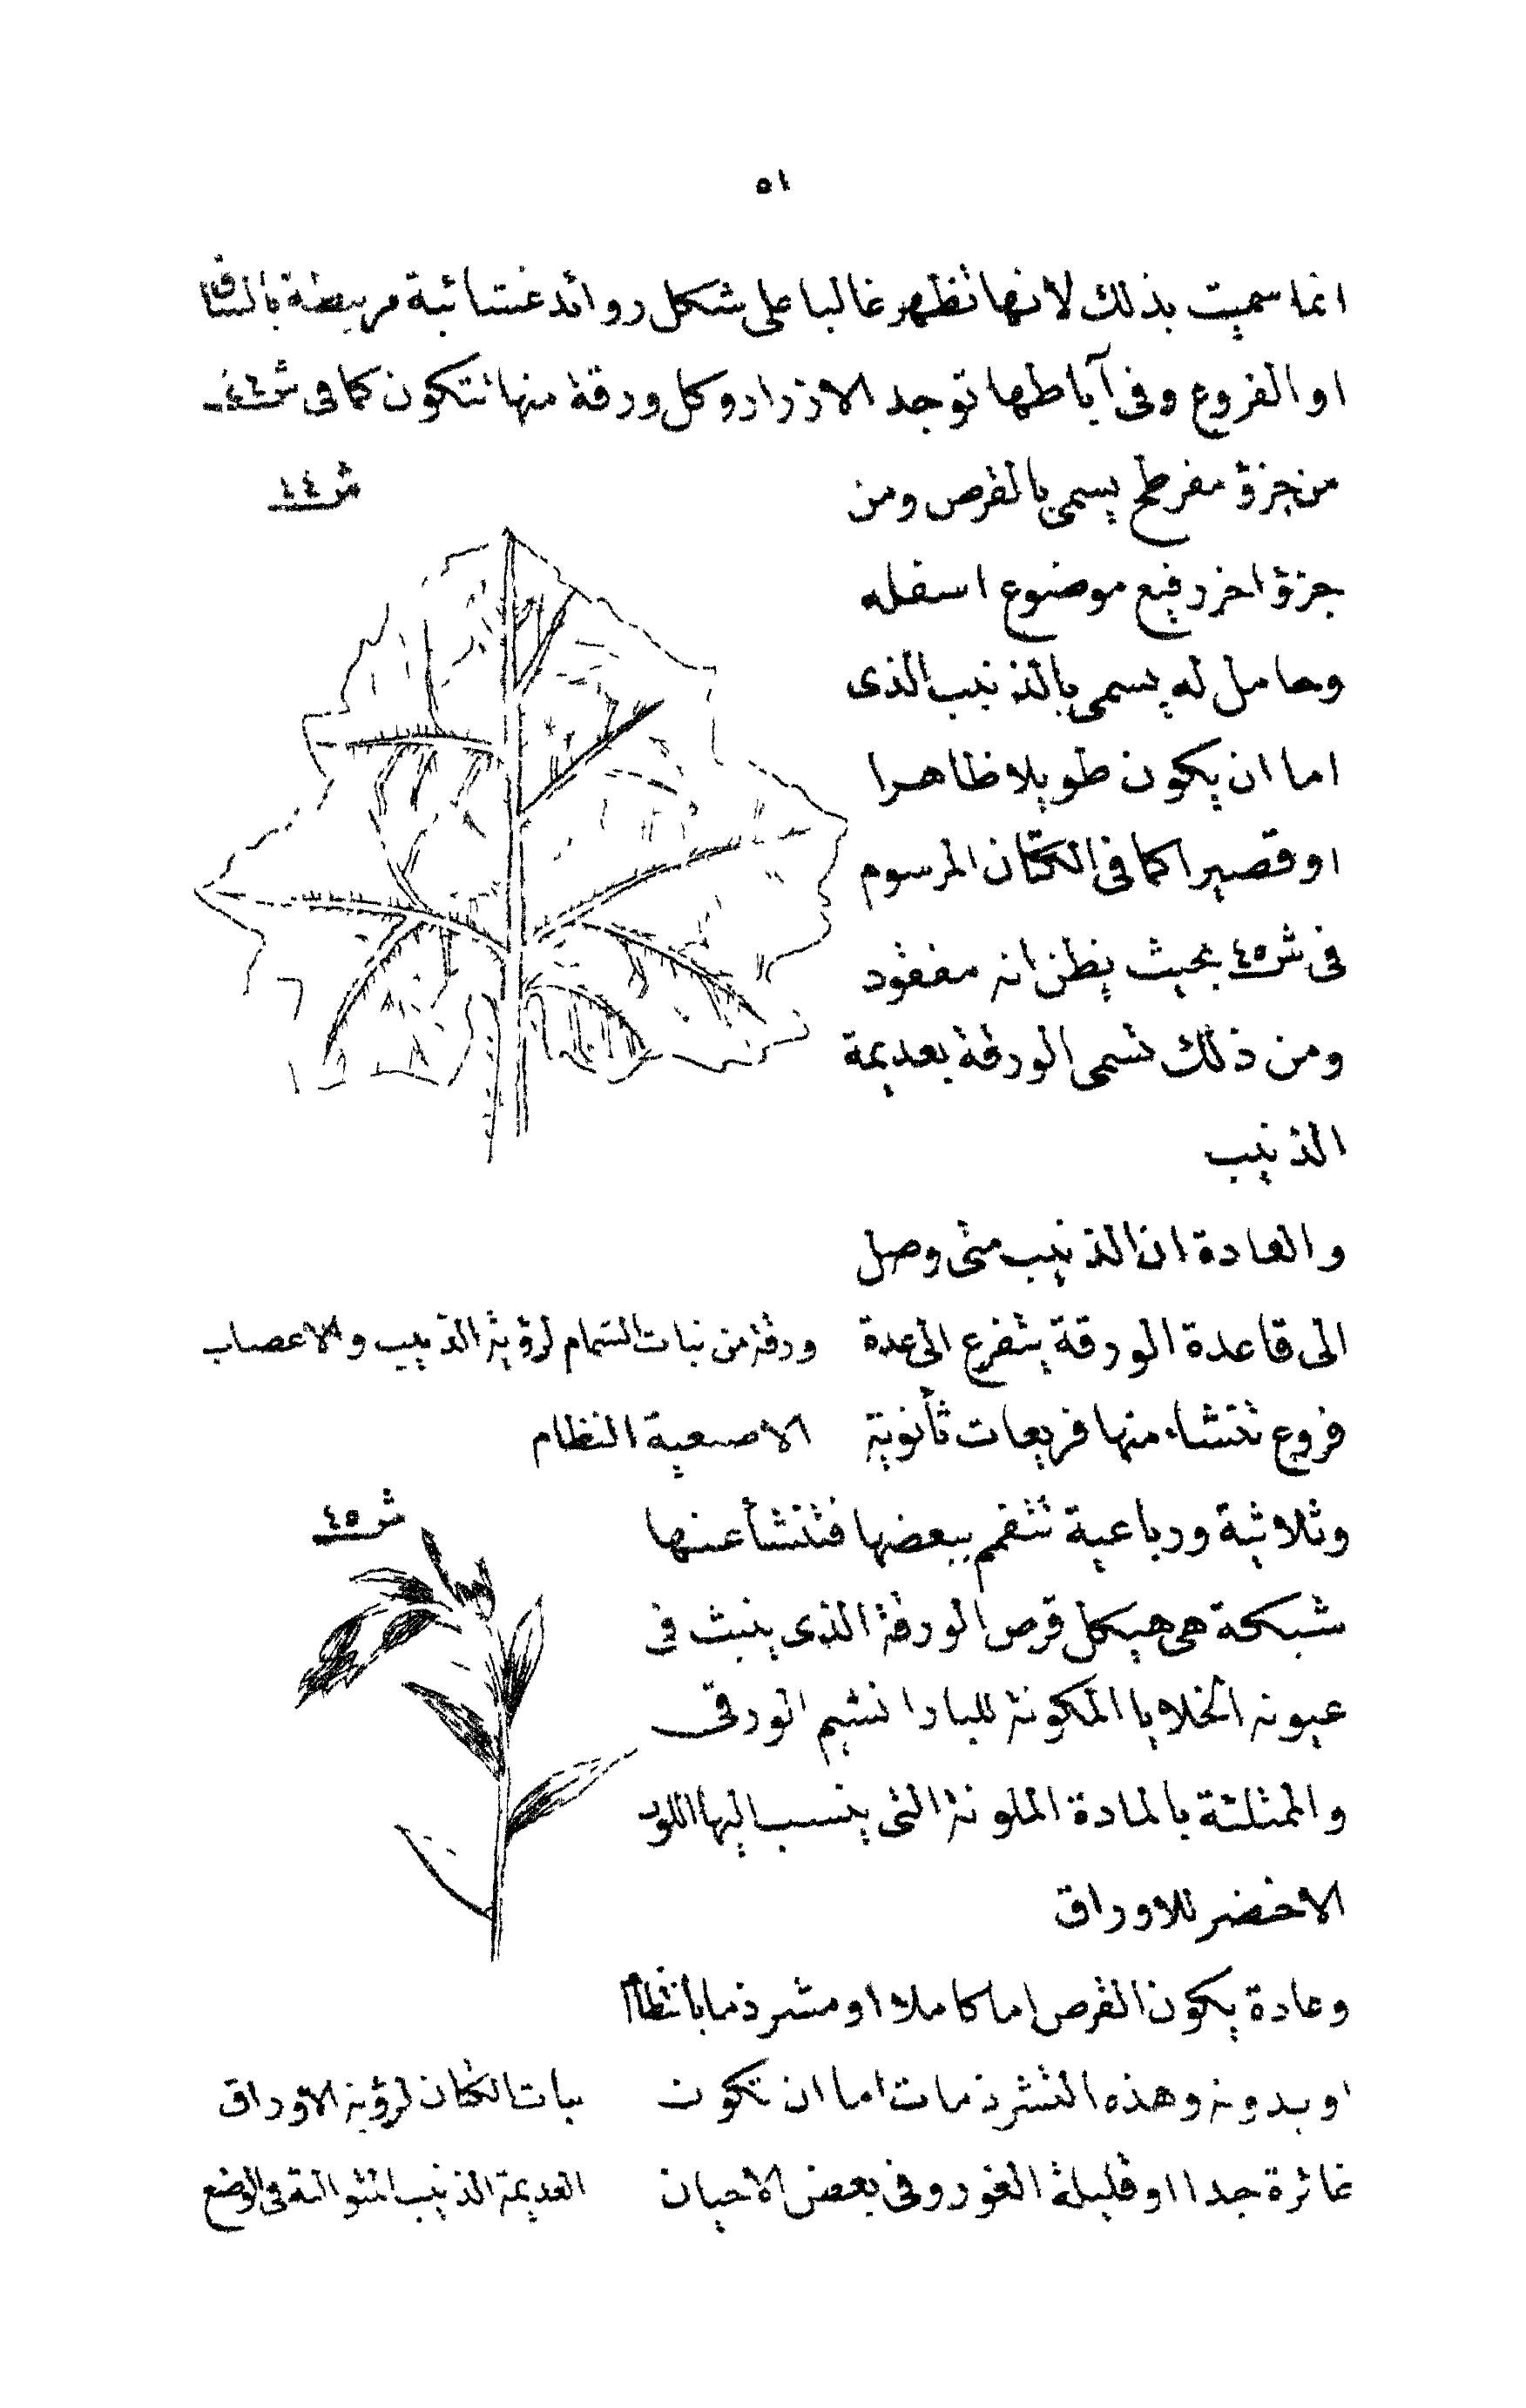 ٥١
انما سميت بذلك لانها تظهر غالبا على شكل زوائد غشائية مرتبطة بالساق
او الفروع وفى آباطها توجد الازرار وكل ورقة منها تتكون كما فى ش ٤٤
من جزؤ مفرطح يسمى بالقرص ومن
ش ٤٤
جزؤ اخر رفيع موضوع اسفله
وحامل له يسمى بالذنيب الذى
اما ان يكون طويلا ظاهرا
او قصيرا كما فى الكتان المرسوم
فى ش ٤٥ بحيث يظن انه مفقود
ومن ذلك تسمى الورقة بعديمة
الذنيب
والعادة ان الذنيب متى وصل
الى قاعدة الورقة يتفرع الى عدة
فروع تنتشاء منها فريعات ثانوية
ورقة من نبات الشمام لرؤية الذنيب والاعصاب
الاصبعية النظام
وثلاثية ورباعية تتفمم ببعضها فتنتشأ عنها
ش ٤٥
شبكة هى هيكل قرص الورقة الذى ينبث فى
عيونه الخلايا المكونة للبارانشيم الورقى
والممتلئة بالمادة الملونة التى ينسب اليها اللون
الاخضر للاوراق
وعادة يكون القرص اما كاملا او مشرذما بانتظام
او بدونه وهذه التشرذمات اما ان تكون
غائرة جدا او قليلة الغور وفى بعض الاحيان
نبات الكتان لرؤية الاوراق
العديمة الذنيب المتوالية فى الوضع